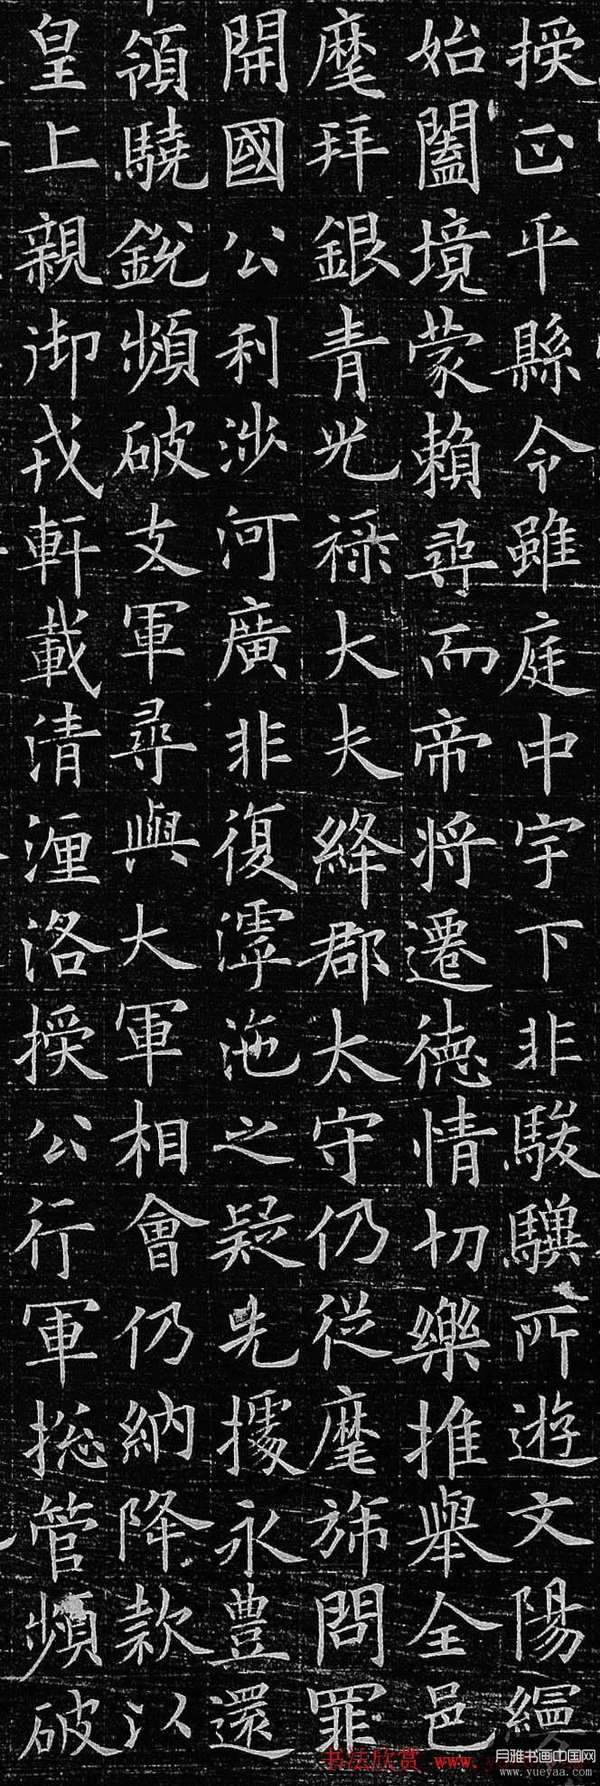 授正平縣令雖庭中宇下非駿驥所遊文陽緼
始闔境蒙賴尋而帝将遷德情切樂推舉全邑
麾拜銀青光祿大夫絳郡太守仍從麾斾問罪
開國公利涉河廣非復滹沲之疑先據永豊還
領驍銳頻破支軍尋與大軍相會仍納降款以
皇上親御戎軒載清瀍洛授公行軍捴管頻破
书法欣赏 www.y
月雅书画中国网
www.yueyaa.com